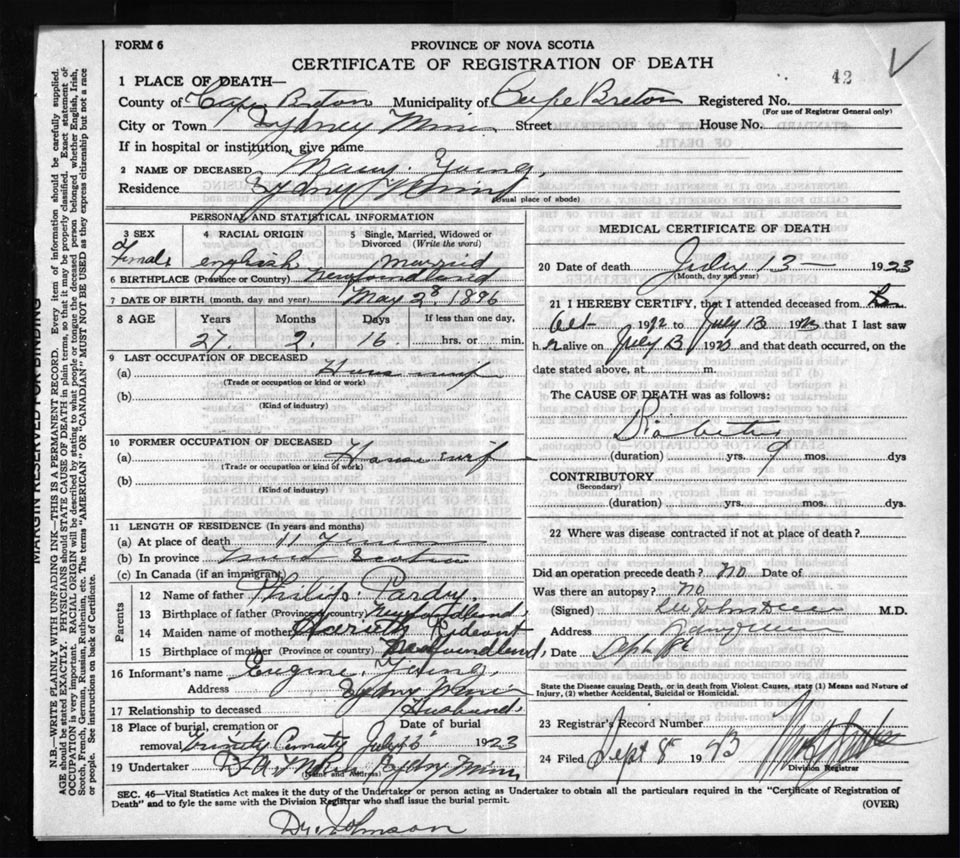 FORM 6
PROVINCE OF NOVA SCOTIA
CERTIFICATE OF REGISTRATION OF DEATH
42
1 PLACE OF DEATH—
County of Cape Breton Municipality of Cape Breton Registered No.
(For use of Registrar General only)
City or Town Sydney Mines Street House No.
If in hospital or institution, give name
2 NAME OF DECEASED Mary Young
Residence Sydney Mines
(Usual place of abode)
PERSONAL AND STATISTICAL INFORMATION
3 SEX 4 RACIAL ORIGIN 5 Single, Married, Widowed or Divorced (Write the word)
Female english married
6 BIRTHPLACE (Province or Country) Newfoundland
7 DATE OF BIRTH (month, day, and year) May 28 1896
8 AGE Years Months Days If less than one day,
27. 2. 16. hrs. or min.
9 LAST OCCUPATION OF DECEASED
(a) House wif
(Trade or occupation or kind or work)
(b)
(Kind of industry)
10 FORMER OCCUPATION OF DECEASED
(a) House wif
(Trade or occupation or kind of work)
(b)
(Kind of industry)
11 LENGTH OF RESIDENCE (In years and months)
(a) At place of death 11 years
(b) In province Nova Scotia
(c) In Canada (if an immigrant)
Parents
12 Name of father Philip Pardy
13 Birthplace of father (Province or country) Newfoundland
14 Maiden name of mother Rideout
15 Birthplace of mother (Province or country) Newfoundland
16 Informant's name Eugene Young
Address Sydney Mines
17 Relationship to deceased Husband
18 Place of burial, cremation or removal Trinity Date of burial July 1923
19 Undertaker Sydney Mines
(Name and Address)
MEDICAL CERTIFICATE OF DEATH
20 Date of death July 13 — 1923
(Month, day and year)
21 I HEREBY CERTIFY, that I attended deceased from
Oct 1922 to July 13 1923 that I last saw
h er alive on July 13 1923 and that death occurred, on the
date stated above, at m.
The CAUSE OF DEATH was as follows:
Diabetes
(duration) yrs. 9 mos. dys
CONTRIBUTORY
(Secondary)
(duration) yrs. mos. dys.
22 Where was disease contracted if not at place of death?
Did an operation precede death? no Date of
Was there an autopsy? no
(Signed) M.D.
Address
Date Sept
State the Disease causing Death, or in death from Violent Causes, state (1) Means and Nature of Injury, (2) whether Accidental, Suicidal or Homicidal.
23 Registrar's Record Number
24 Filed Sept 8 1923
Division Registrar
SEC. 46—Vital Statistics Act makes it the duty of the Undertaker or person acting as Undertaker to obtain all the particulars required in the "Certificate of Registration of
Death" and to fyle the same with the Division Registrar who shall issue the burial permit. (OVER)
Dr Johnson
MARGIN RESERVED FOR BINDING
N.B.—WRITE PLAINLY WITH UNFADING INK—THIS IS A PERMANENT RECORD. Every item of information should be carefully supplied.
AGE should be stated EXACTLY. PHYSICIANS should STATE CAUSE OF DEATH in plain terms, so that it may be properly classified. Exact statement of
OCCUPATION is very important. RACIAL ORIGIN will be described by stating to what people or tongue the deceased person belonged whether English, Irish,
Scotch, French, German, Russian, Ruthenian, etc. The terms "AMERICAN" OR "CANADIAN" MUST NOT BE USED as they express citizenship but not a race
or people. See instructions on back of Certificate.